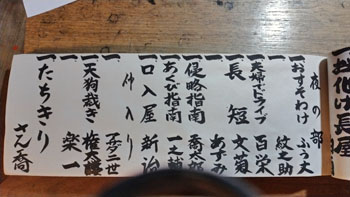 夜の部
一、おすそわけ ぶう太
紋之助
一、夫婦でドライブ 百栄
一、長短 文菊
あずみ
一、侵略指南 喬太郎
一、あくび指南 一之輔
一、口入屋 新治
仲入り
二世
一、天狗裁き 権太楼
楽一
一、たちきり さん喬
お化け長屋